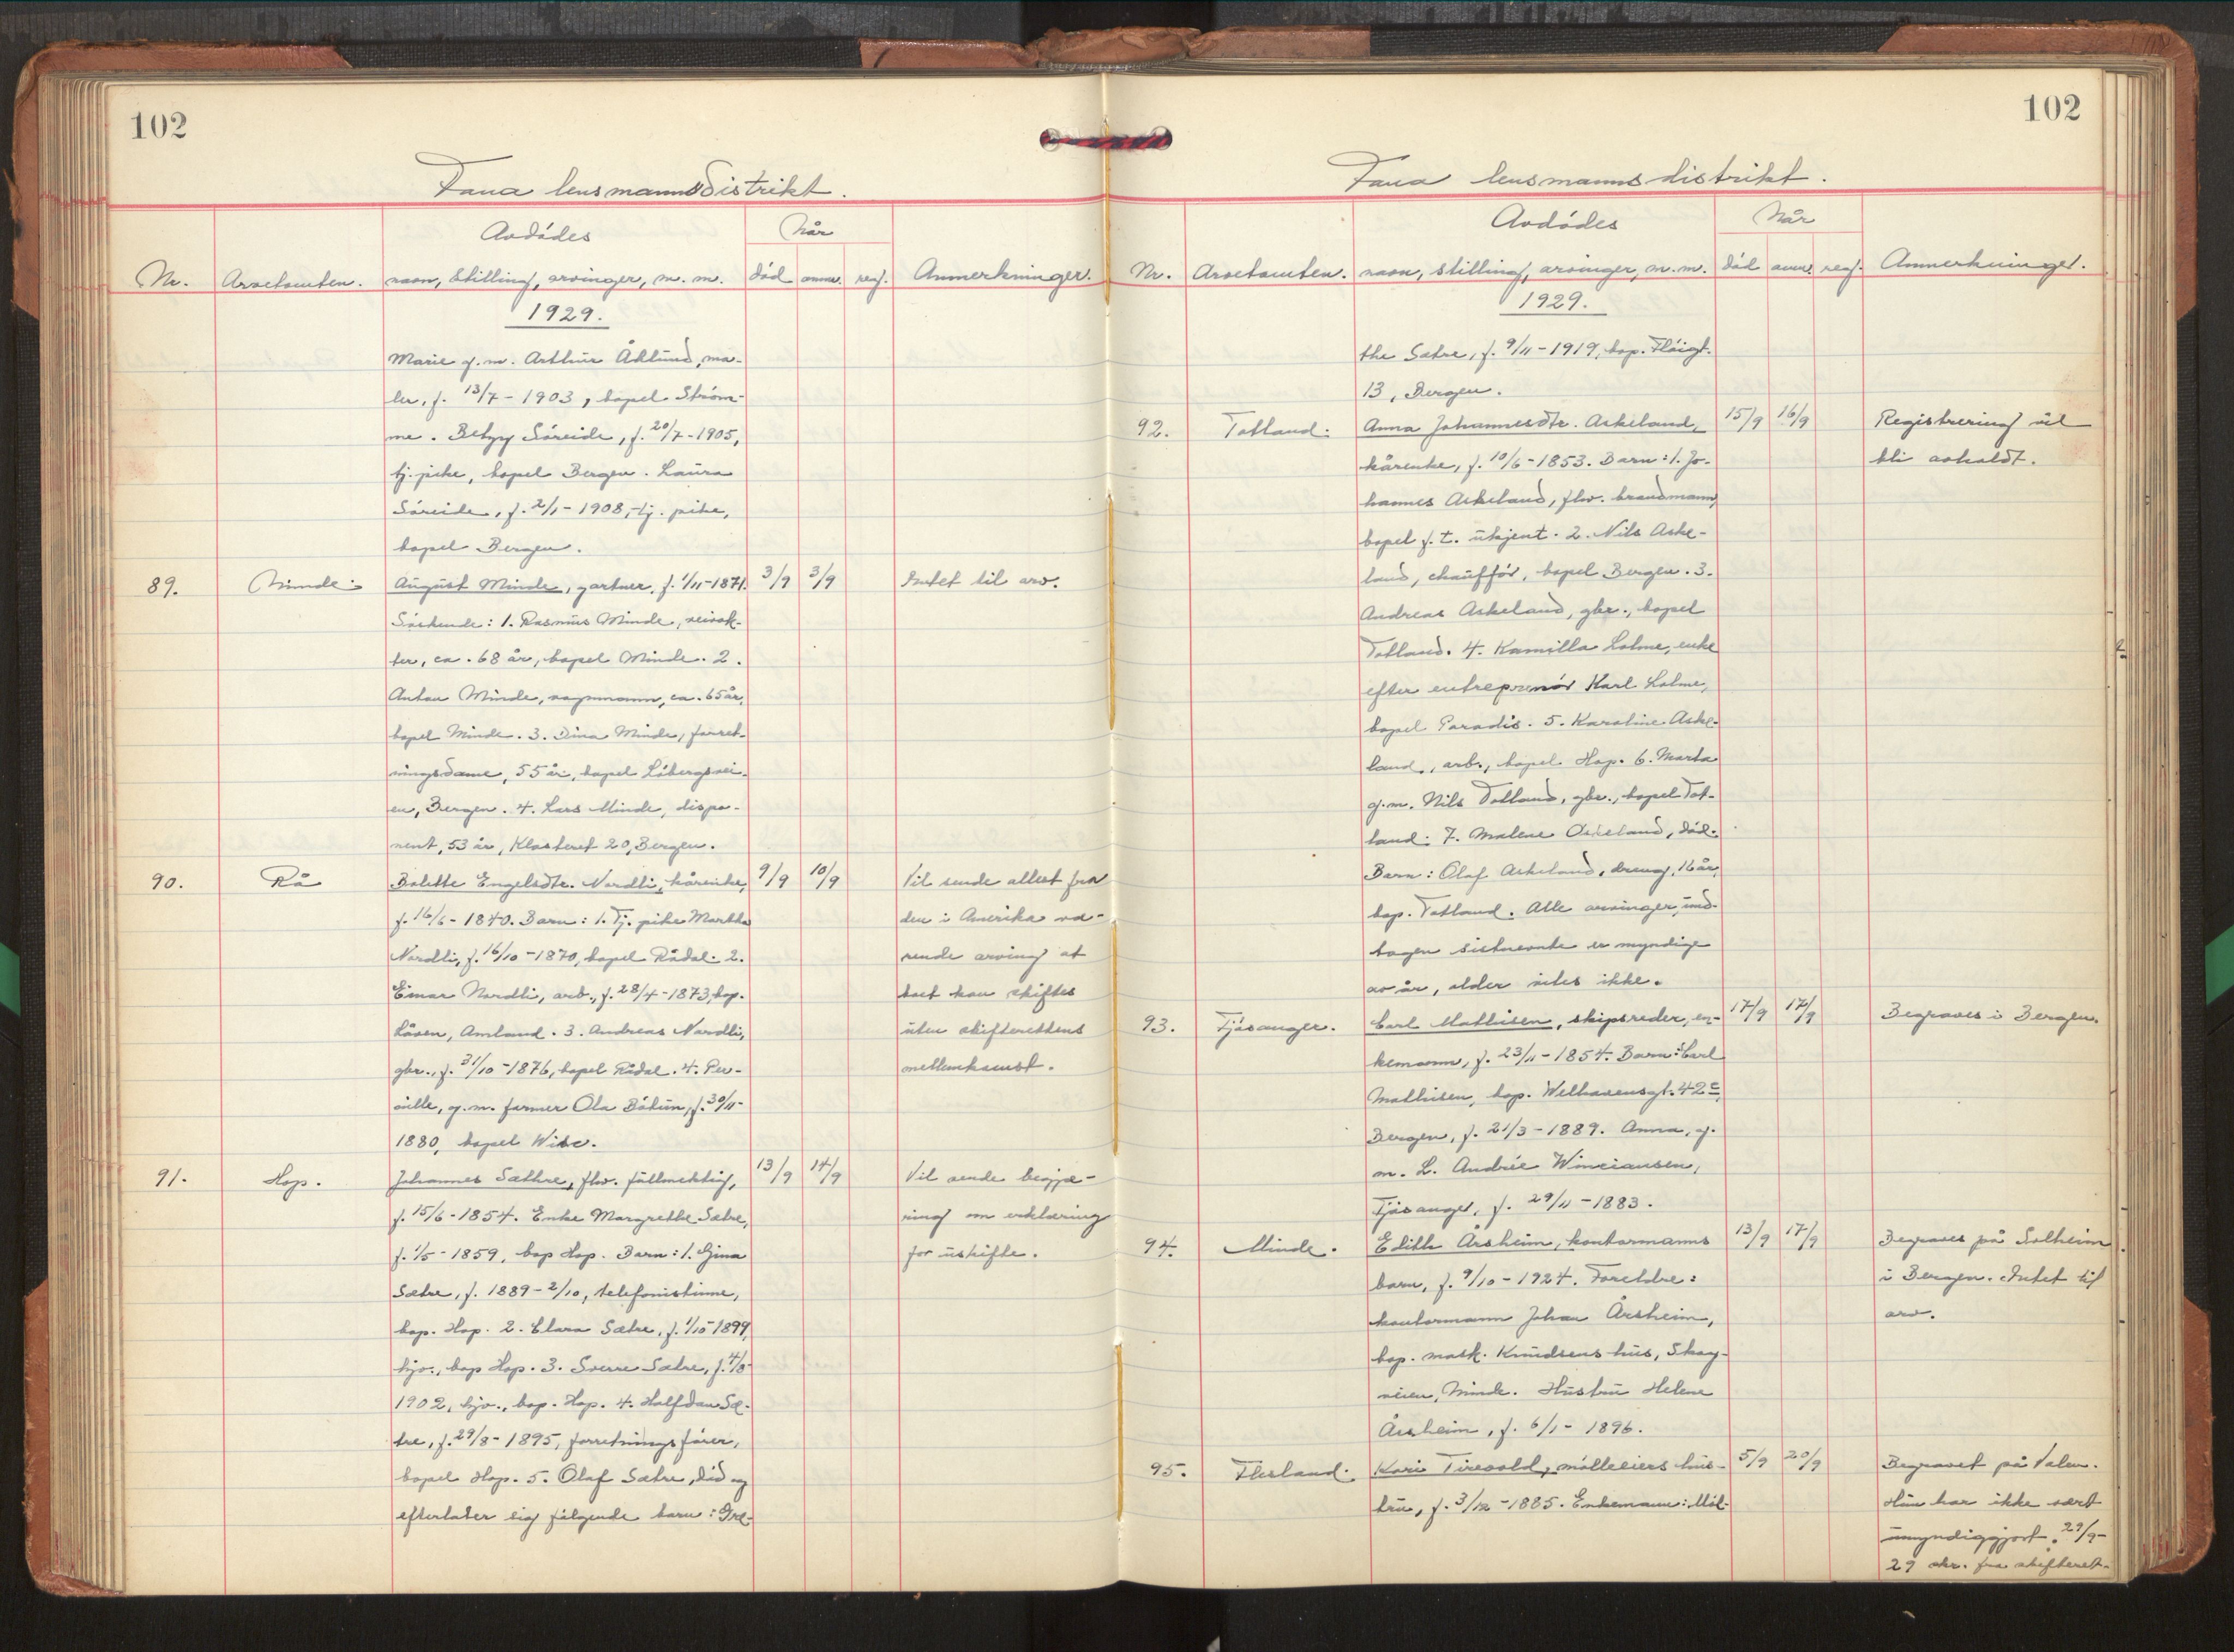 102
Fana lensmannsdistrikt.
Avdødes
Når
Nr.
Arvetomten.
navn, stilling, arvinger, m. m.
død
anm.
reg.
Anmerkninger.
1929.
Marie g. m. Arthur Åklund, ma-
ler, f. 13/7 - 1903, bopel Strøm-
me. Betzy Søreide, f. 20/7 - 1905,
tj. pike, bopel Bergen. Laura
Søreide, f. 2/1 - 1908, tj. pike,
bopel Bergen.
89. Minde. August Minde, gartner, f. 1/11-1871. 3/9 3/9 Intet til arv.
Søskende: 1. Rasmus Minde, veivok-
ter, ca. 68 år, bopel Minde. 2.
Anton Minde, vognmann, ca. 65 år,
bopel Minde. 3. Dina Minde, forret-
ningsdame, 55 år, bopel Løbergsvei-
en, Bergen. 4. Lars Minde, dispo-
nent, 53 år, Klosteret 20, Bergen.
90. Rå Bolette Engelsdtr. Nordli, kårenke, 9/9 10/9 Vil sende attest fra
f. 16/6 - 1840. Barn: 1. Tj. pike Martha den i Amerika væ-
Nordli, f. 16/10 - 1870, bopel Rådal. 2. rende arving at
Einar Nordli, arb., f. 28/4 - 1873, bop. boet kan skiftes
Råen, Amland. 3. Andreas Nordli, uten skifterettens
gbr., f. 31/10 - 1876, bopel Rådal. 4. Per- mellemkomst.
nille, g. m. farmer Ola Bøtun, f. 30/11 -
1880, bopel Wisc.
91. Hop. Johannes Sæthre, fhv. fullmektig, 13/9 14/9 Vil sende begjæ-
f. 15/6 - 1854. Enke Margrethe Sætre, ring om erklæring
f. 1/5 - 1859, bop Hop. Barn: 1. Gina for uskifte.
Sætre, f. 1889 - 2/10, telefonistinne,
bop. Hop. 2. Clara Sætre, f. 1/10 - 1899,
hjv., bop Hop. 3. Sverre Sætre, f. 4/8 -
1902, hjv., bop. Hop. 4. Halfdan Sæ-
tre, f. 29/8 - 1895, forretningsfører,
bopel Hop. 5. Olaf Sætre, død og
efterlater sig følgende barn: Gre-
102
Fana lensmannsdistrikt.
Avdødes
Når
Nr.
Arvetomten.
navn, stilling, arvinger, m. m.
død
anm.
reg.
Anmerkninger.
1929.
the Sætre, f. 9/11 - 1919, bop. Fløigt.
13, Bergen.
92. Totland. Anna Johannesdtr. Askeland, 15/9 16/9 Registrering vil
kårenke, f. 10/6 - 1853. Barn: 1. Jo- bli avholdt.
hannes Askeland, fhv. brandmann,
bopel f. t. ukjent. 2. Nils Aske-
land, chauffør, bopel Bergen. 3.
Andreas Askeland, gbr., bopel
Totland. 4. Kamilla Lohne, enke
efter entreprenør Karl Lohne,
bopel Paradis. 5. Karoline Aske-
land, arb., bopel Hop. 6. Marta
g. m. Nils Totland, gbr., bopel Tot-
land. 7. Malene Askeland, død.
Barn: Olaf Askeland, dreng, 16 år,
bop. Totland. Alle arvinger und-
tagen sistnevnte er myndige
av år, alder vites ikke.
93. Fjøsanger. Carl Mathisen, skipsreder, en- 17/9 17/9 Begraves i Bergen.
kemann, f. 23/11 - 1854. Barn: Carl
Mathisen, bop. Welhavensgt. 42 c,
Bergen, f. 21/3 - 1889. Anna, g.
m. L. Andrée Winciansen,
Fjøsanger, f. 29/11 - 1883.
94. Minde. Edith Årsheim, kontormanns 13/9 17/9 Begraves på Solheim
barn, f. 9/10 - 1924. Foreldre: i Bergen. Intet til
kontormann Johan Årsheim, arv.
bop. mask. Knudsens hus, Skog-
veien, Minde. Hustru Helene
Årsheim, f. 6/1 - 1896.
95. Flesland. Kari Tirevold, mølleeiers hus- 5/9 20/9 Begravet på Valen.
tru, f. 3/12 - 1885. Enkemann: Møl- Hun har ikke vært
umyndiggjort. 27/9 -
29 skr. fra skifteret-